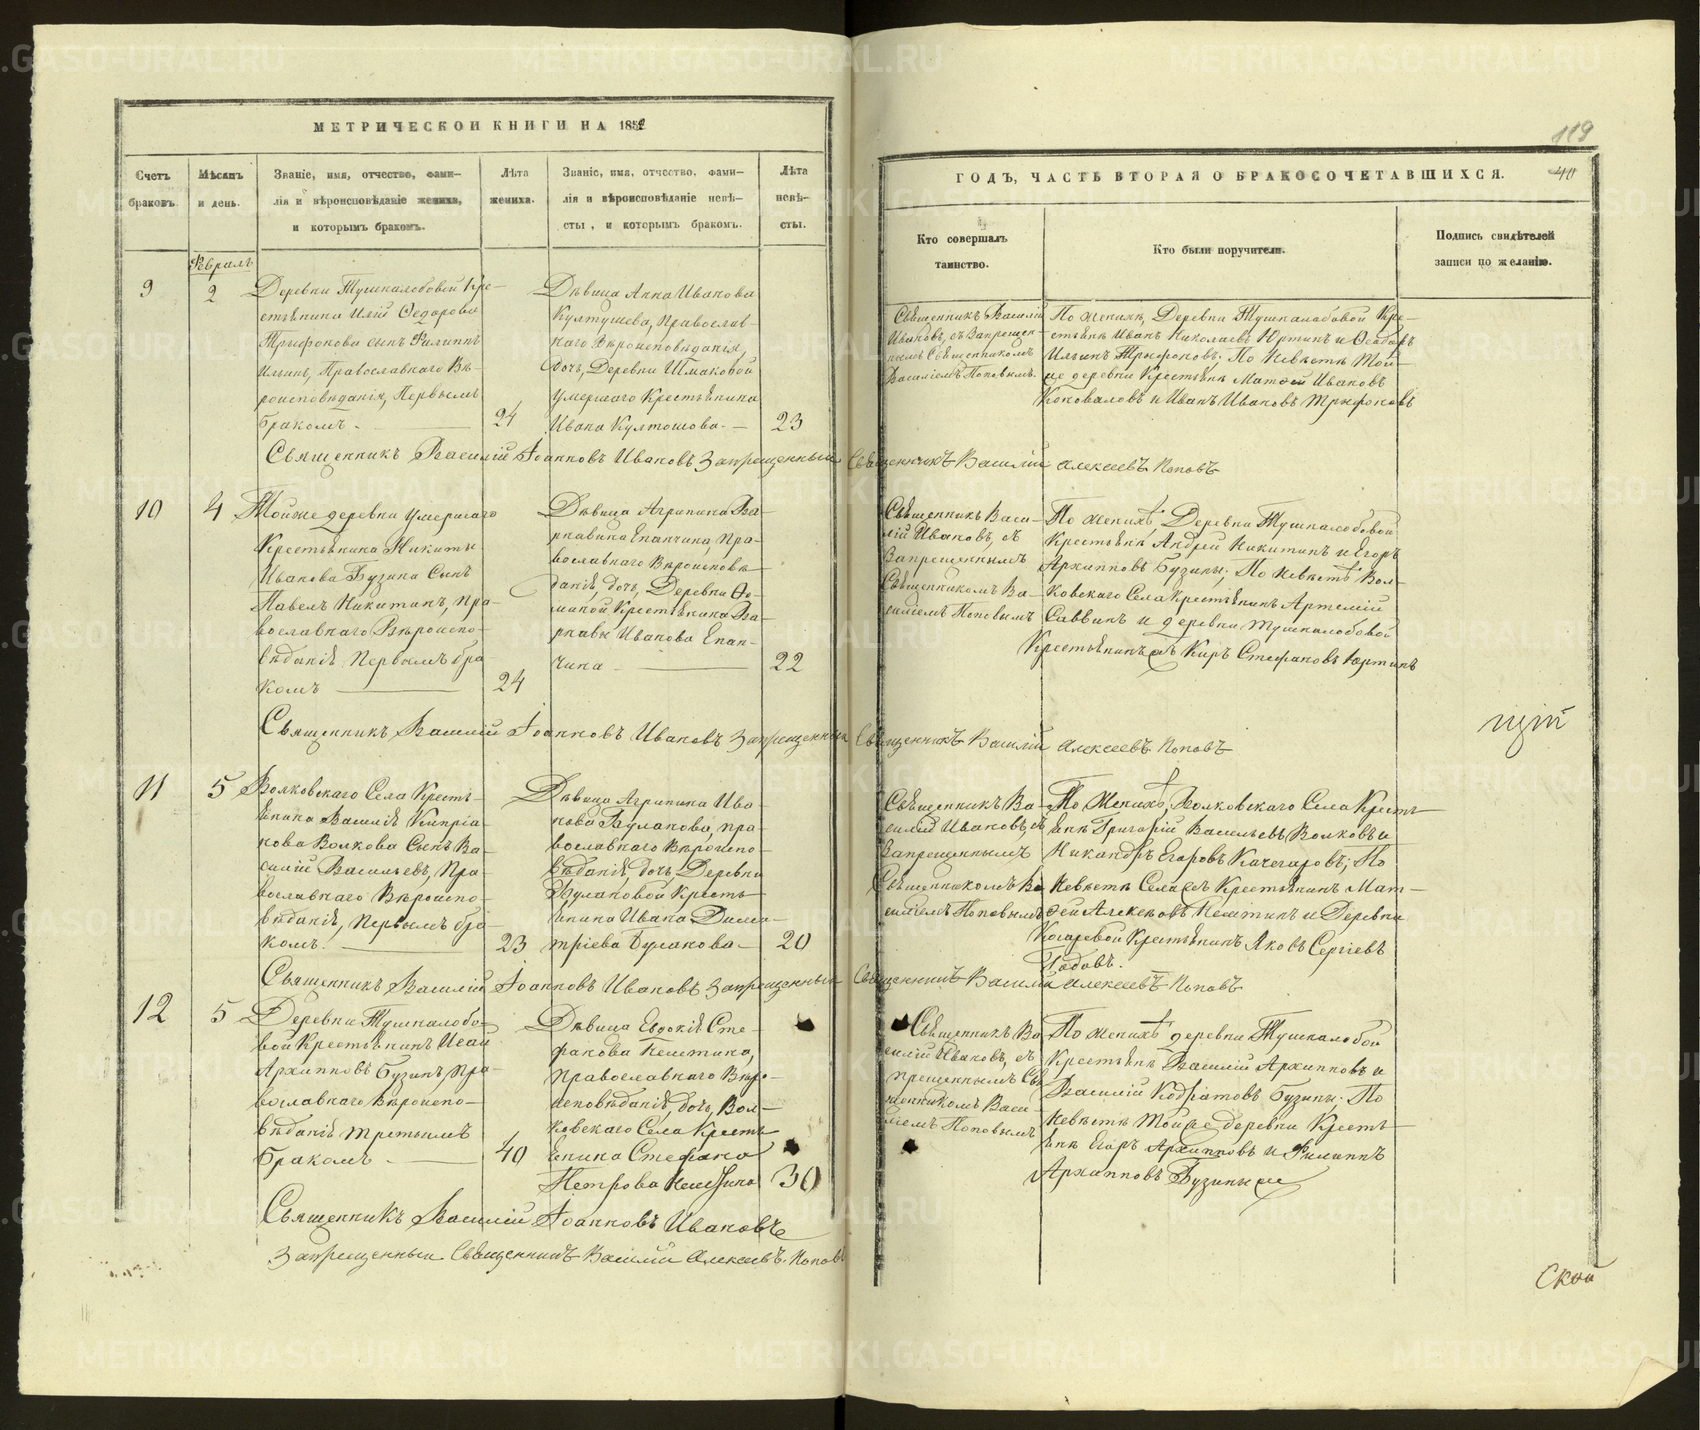 МЕТРИЧЕСКОЙ КНИГИ НА 1852
Счетъ браковъ.
Мѣсяцъ и день.
Званіе, имя, отчество, фами-
лія и вѣроисповѣданіе жениха,
и которымъ бракомъ.
Лѣта жениха.
Званіе, имя, отчество, фами-
лія и вѣроисповѣданіе невѣ-
сты, и которымъ бракомъ.
Лѣта невѣ-
сты.
Февраль
9
2
Деревни Тушкалобовой Кре-
стьянина Иліи Ѳедорова
Трифонова сынъ Филиппъ
Ильинъ, Православнаго Вѣ-
роисповѣданія, Первымъ
бракомъ.
24
Дѣвица Анна Иванова
Култушева, Православ-
наго Вѣроисповѣданія,
Дочь, Деревни Шмаковой
умершаго Крестьянина
Ивана Култошова.
23
Священникъ Василій Іоанновъ Ивановъ Запрещенный Священникъ Василій Алексеевъ Поповъ
10
4
Тойже деревни умершаго
Крестьянина Никиты
Иванова Бузина Сынъ
Павелъ Никитинъ, Пра-
вославнаго Вѣроиспо-
вѣданія, Первымъ бра
комъ
24
Дѣвица Агрипина Ва-
рнавина Епанчина, Пра-
вославнаго Вѣроисповѣ-
данія, дочь, Деревни Ѳо-
миной Крестьянина Ва-
рнавы Иванова Епан-
чина
22
Священникъ Василій Іоанновъ Ивановъ Запрещенный Священникъ Василій Алексеевъ Поповъ
11
5
Волковскаго Села Кресть-
янина Василія Кипріа-
нова Волкова Сынъ Ва-
силій Васильевъ, Пра-
вославнаго Вѣроиспо-
вѣданія, Первымъ бра-
комъ.
23
Дѣвица Агрипина Ива-
нова Булакова, пра-
вославнаго Вѣроиспо-
вѣданія, дочь, Деревни
Булановой Кресть-
янина Ивана Дими-
тріева Булакова
20
Священникъ Василій Іоанновъ Ивановъ Запрещенный Священникъ Василій Алексеевъ Поповъ
12
5
Деревни Тушкалобо-
вой Крестьянинъ Исаи
Архипповъ Бузинъ, Пра-
вославнаго Вѣроиспо-
вѣданія третьимъ
бракомъ
40
Дѣвица Евдокія Сте-
фанова Кештина,
Православнаго Вѣро-
исповѣданія, дочь, Вол-
ковскаго Села Кресть
янина Стефана
Петрова Кештина
30
Священникъ Василій Іоанновъ Ивановъ
Запрещенный Священникъ Василій Алексеевъ Поповъ
119
40
ГОДЪ, ЧАСТЬ ВТОРАЯ О БРАКОСОЧЕТАВШИХСЯ.
Кто совершалъ
таинство.
Кто были поручители.
Подпись свидѣтелей
записи по желанію.
Священникъ Василій
Ивановъ, съ Запрещен-
нымъ Священникомъ
Василіемъ Поповымъ.
По женихѣ, Деревни Тушкалобовой Кре-
стьяне Иванъ Николаевъ Юртинъ и
Ильинъ Трифоновъ; По Невѣстѣ Той-
же деревни Крестьяне Матѳей Ивановъ
Коноваловъ и Иванъ Ивановъ Трифоновъ
Священникъ Васи-
лій Ивановъ, съ
Запрещеннымъ
Священникомъ Ва-
силіемъ Поповымъ
По женихѣ Деревни Тушкалобовой
Крестьяне Андрей Никитинъ и Егоръ
Архипповъ Бузины; По невѣстѣ Вол-
ковскаго Села Крестьянинъ Артемій
Саввинъ и деревни Тушкалобовой
Крестьянинъ Киръ Стефановъ Юртинъ
щій
Священникъ Ва-
силій Ивановъ, съ
Запрещеннымъ
Священникомъ Ва
силіемъ Поповымъ
По Женихѣ, Волковскаго Села Кресть
яне Григорій Васильевъ Волковъ и
Никандръ Егоровъ Качегаровъ; По
Невѣстѣ Села Крестьянинъ Мат-
ѳей Алексеевъ Кештинъ и Деревни
Косаревой Крестьянинъ Яковъ Сергіевъ
Священникъ Ва
силій Ивановъ, съ
прещеннымъ Свя
щенникомъ Васи-
ліемъ Поповымъ
По женихѣ деревни Тушкалобой
Крестьяне Василій Архипповъ и
Василій Кодратовъ Бузины; По
Невѣстѣ Тойже деревни Кресть-
яне Егоръ Архипповъ и Филиппъ
Архипповъ Бузины
Ской
METRIKI.GASO-URAL.RU